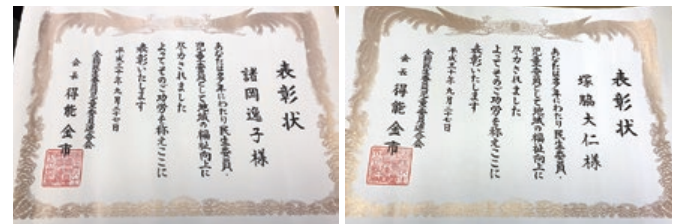 表彰状
諸岡逸子様
あなたは多年にわたり民生委員・
児童委員として地域の福祉向上に
尽力されました
よってそのご功労を称えここに
表彰いたします
平成三十年九月二十七日
全国民生委員児童委員連合会
会長 得能金市
表彰状
塚脇大仁様
あなたは多年にわたり民生委員・
児童委員として地域の福祉向上に
尽力されました
よってそのご功労を称えここに
表彰いたします
平成三十年九月二十七日
全国民生委員児童委員連合会
会長 得能金市